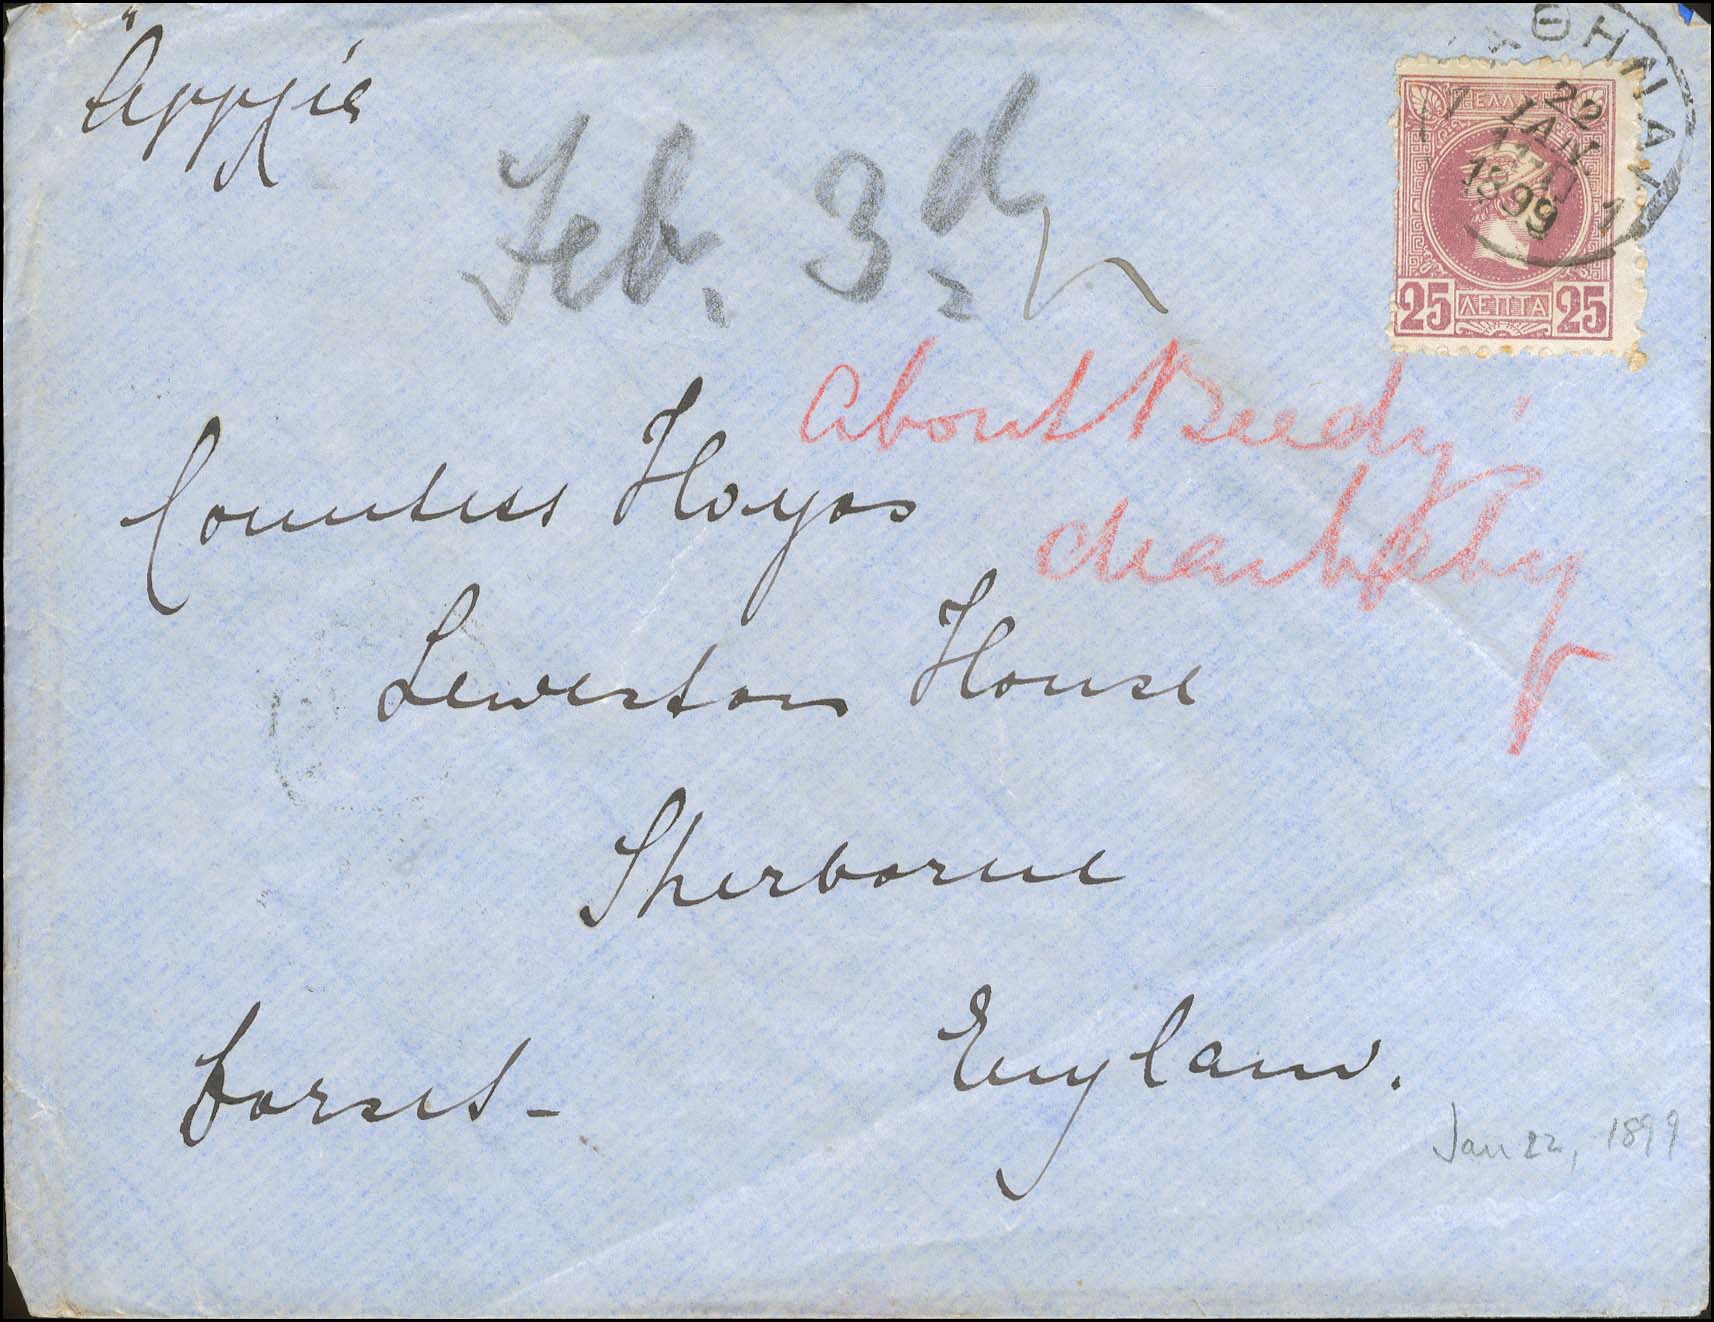 Αγγλία
Feb. 3d
ΑΘΗΝΑΙ 1
22
ΙΑΝ
1899
ΕΛΛ
25 ΛΕΠΤΑ 25
about
Countess Hoyos
Leweston House
Sherborne
Dorset -
England.
Jan 22, 1899